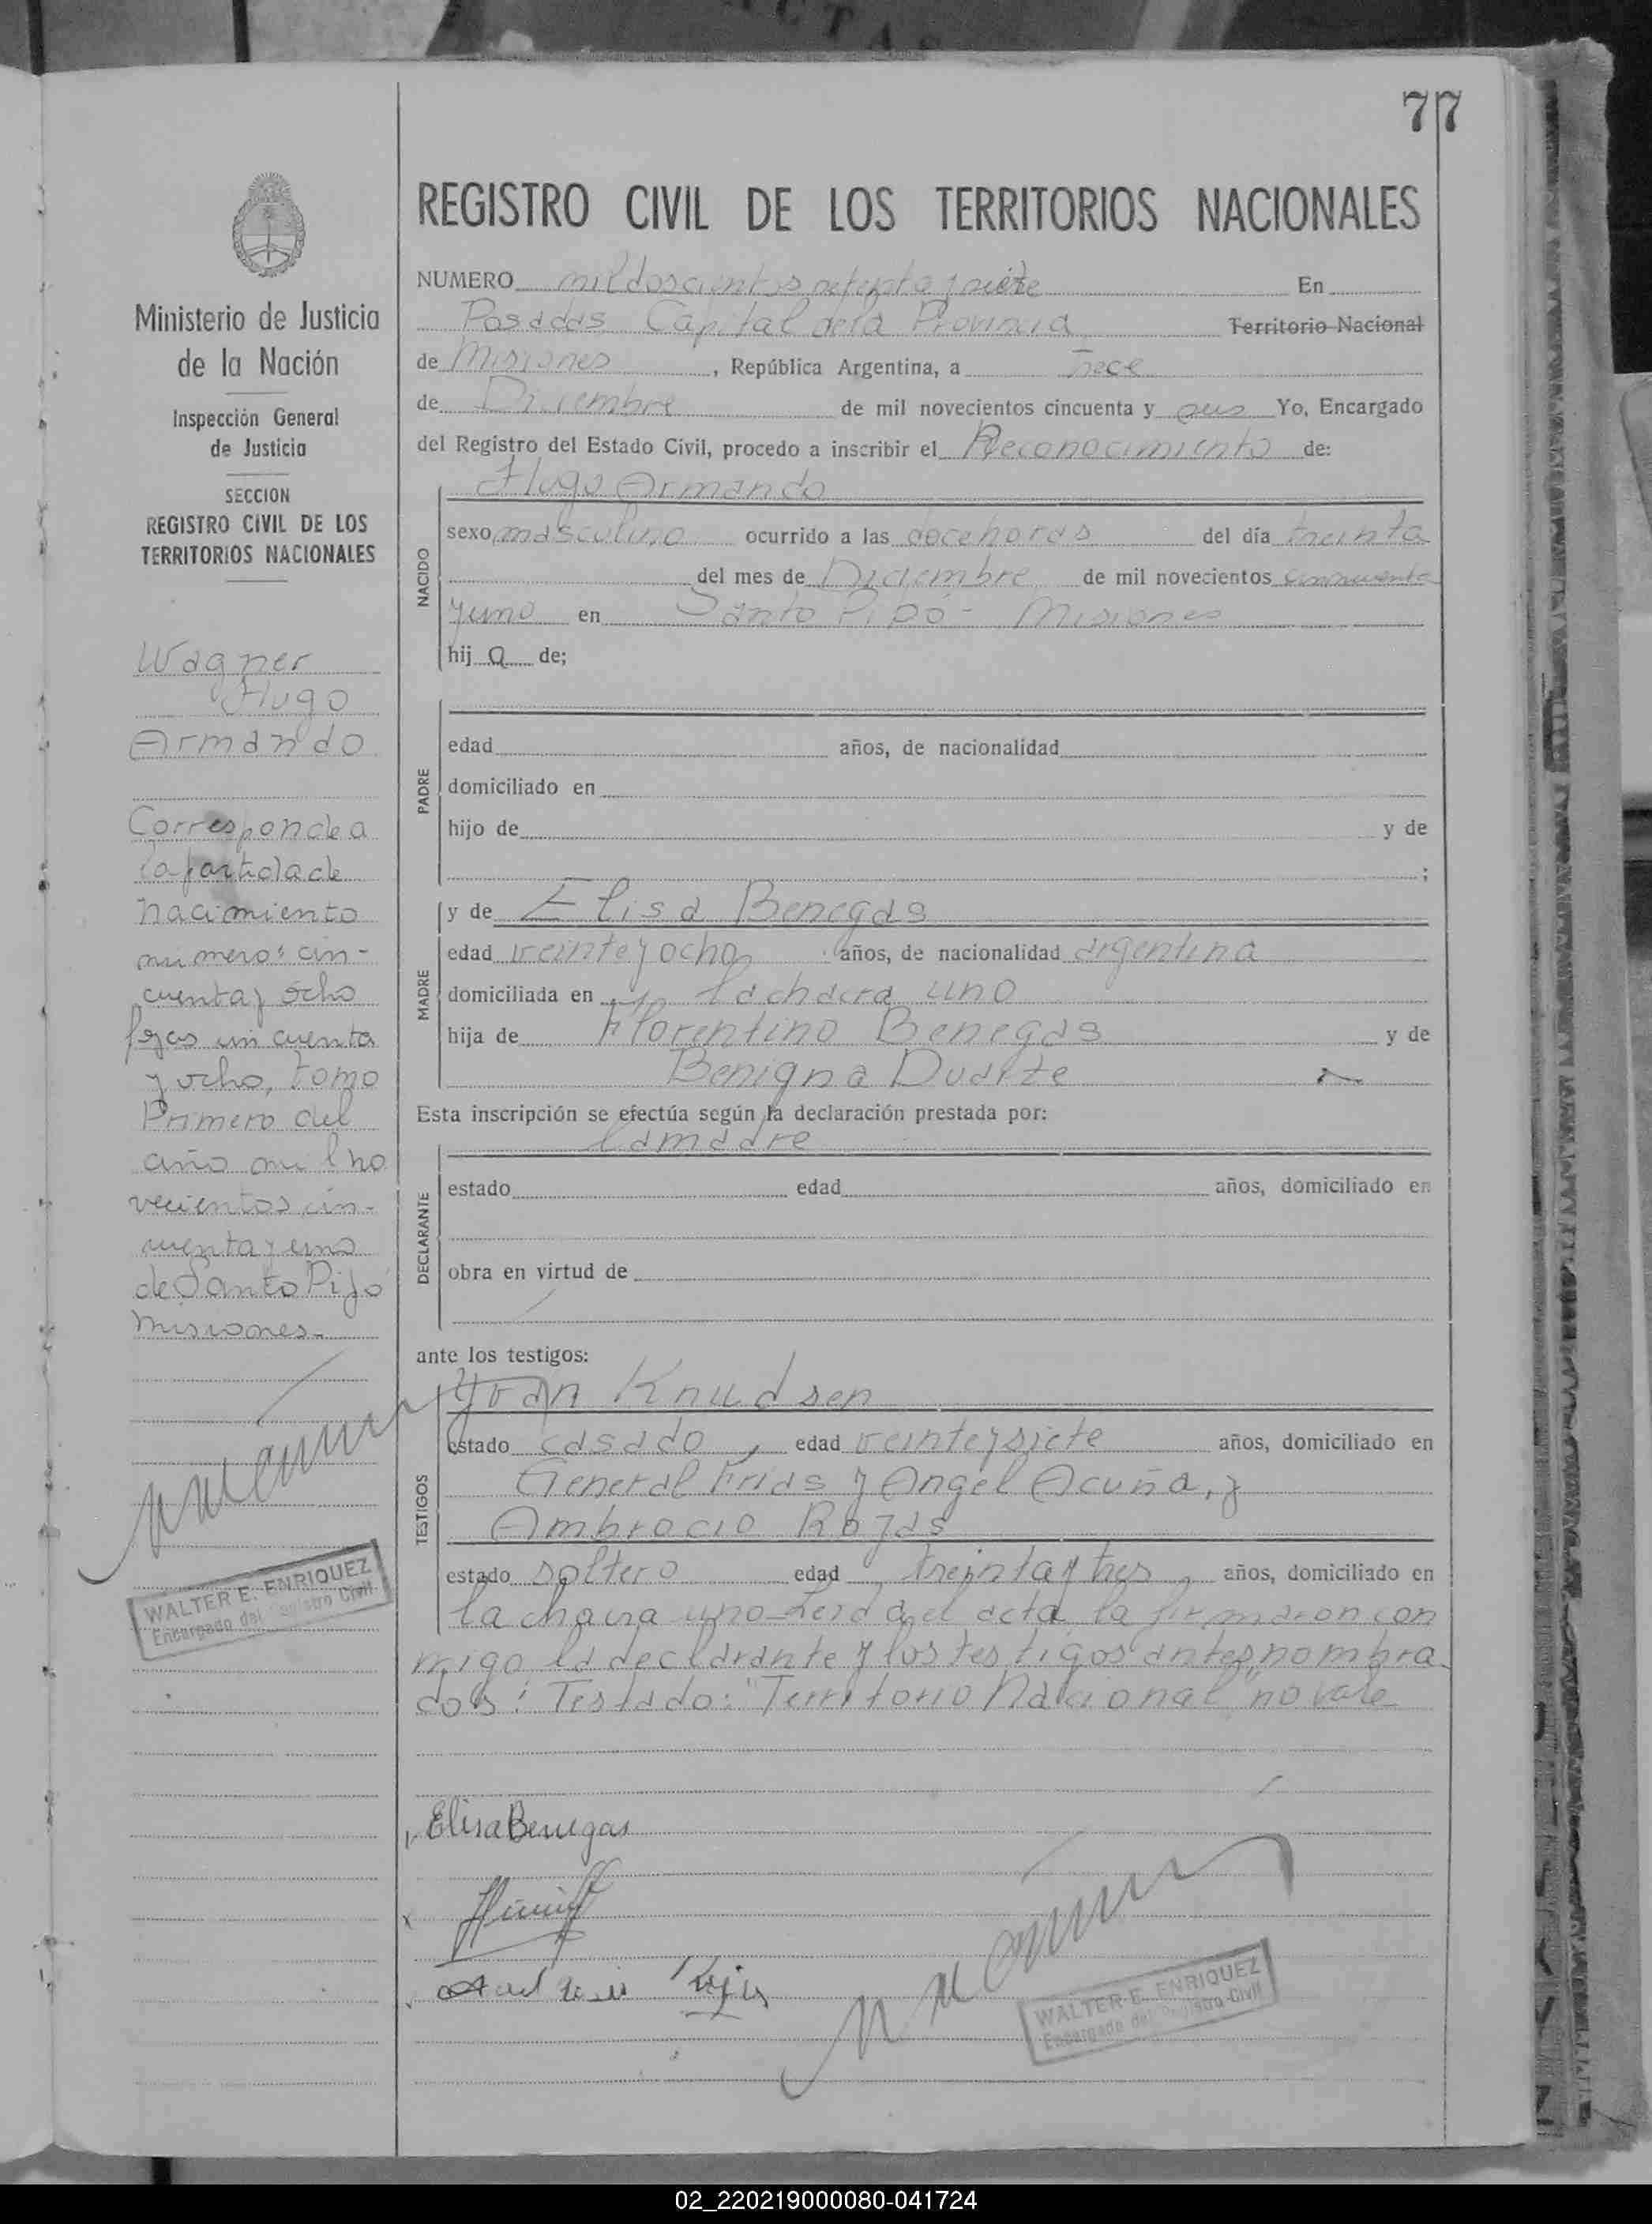 77
REGISTRO CIVIL DE LOS TERRITORIOS NACIONALES
NUMERO mil doscientos setenta y siete En
Posadas Capital de la Provincia Territorio Nacional
de Misiones, República Argentina, a Trece
de Diciembre de mil novecientos cincuenta y seis Yo, Encargado
del Registro del Estado Civil, procedo a inscribir el Reconocimiento de:
Hugo Armando
NACIDO
sexo masculino ocurrido a las doce horas del día treinta
del mes de Diciembre de mil novecientos cincuenta
y uno en Santo Pipó - Misiones
hij o de;
PADRE
edad años, de nacionalidad
domiciliado en
hijo de y de
;
MADRE
y de Elisa Benegas
edad veinte y ocho años, de nacionalidad argentina
domiciliada en la chacra uno
hija de Florentino Benegas y de
Benigna Duarte
Esta inscripción se efectúa según la declaración prestada por:
la madre
DECLARANTE
estado edad años, domiciliado en
obra en virtud de
ante los testigos:
TESTIGOS
Juan Knudsen
estado casado, edad veinte y siete años, domiciliado en
General Frias y Angel Acuña, y
Ambrocio Rojas
estado soltero edad treinta y tres, años, domiciliado en
la chacra uno - Leida el acta, la firmaron con
migo la declarante y los testigos antes nombra
dos: Testado: "Territorio Nacional" no vale
Elisa Benegas
Rojas
WALTER E. ENRIQUEZ
Encargado del Registro Civil
Ministerio de Justicia
de la Nación
Inspección General
de Justicia
SECCION
REGISTRO CIVIL DE LOS
TERRITORIOS NACIONALES
Wagner
Hugo
Armando
Corresponde a
la partida de
nacimiento
numero: cin-
cuenta y ocho
fojas cincuenta
y ocho, tomo
Primero del
año mil no
vecientos cin-
cuenta y uno
de Santo Pipó
Misiones.-
WALTER E. ENRIQUEZ
Encargado del Registro Civil
02_220219000080-041724